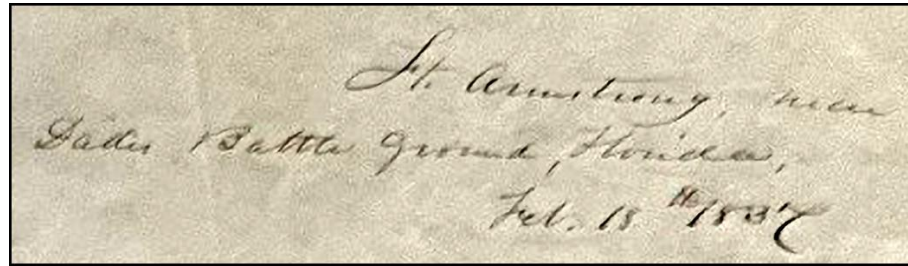 Ft. Armstrong, near
Dades Battle Ground, Florida,
Feb. 18th 1837